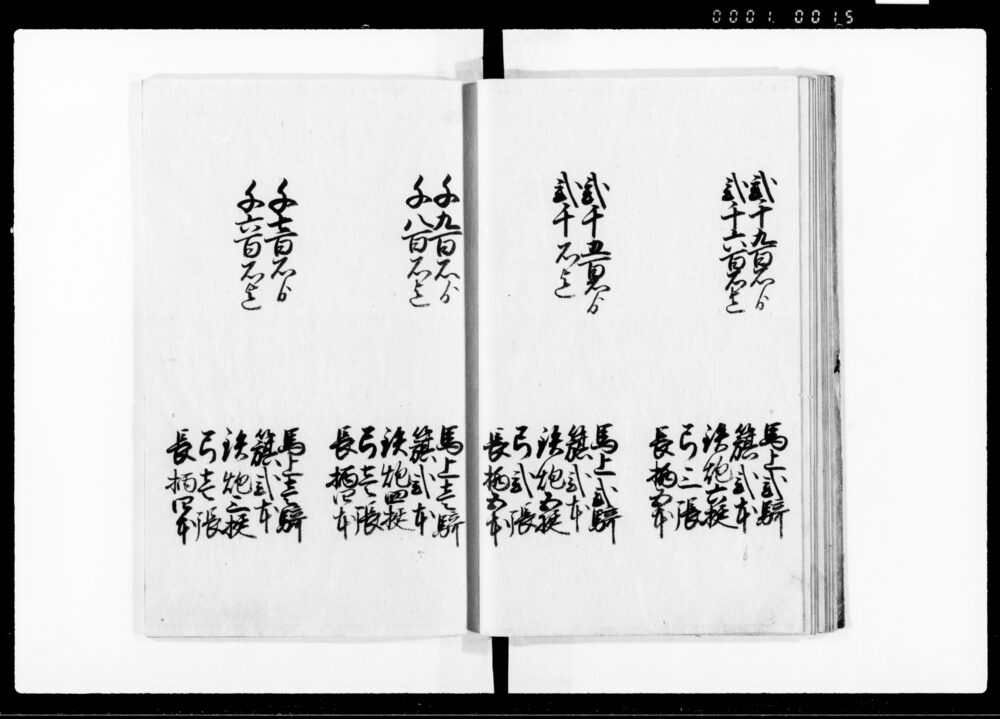 0001. 0015
弐千九百石ゟ
弐千六百石迄
馬上弐騎
籏弐本
鉄炮六挺
弓三張
長柄五本
弐千五百石ゟ
弐千石迄
馬上弐騎
籏弐本
鉄炮五挺
弓弐張
長柄五本
千九百石ゟ
千八百石迄
馬上壱騎
籏弐本
鉄炮四挺
弓壱張
長柄四本
千七百石ゟ
千六百石迄
馬上壱騎
籏弐本
鉄炮三挺
弓壱張
長柄四本